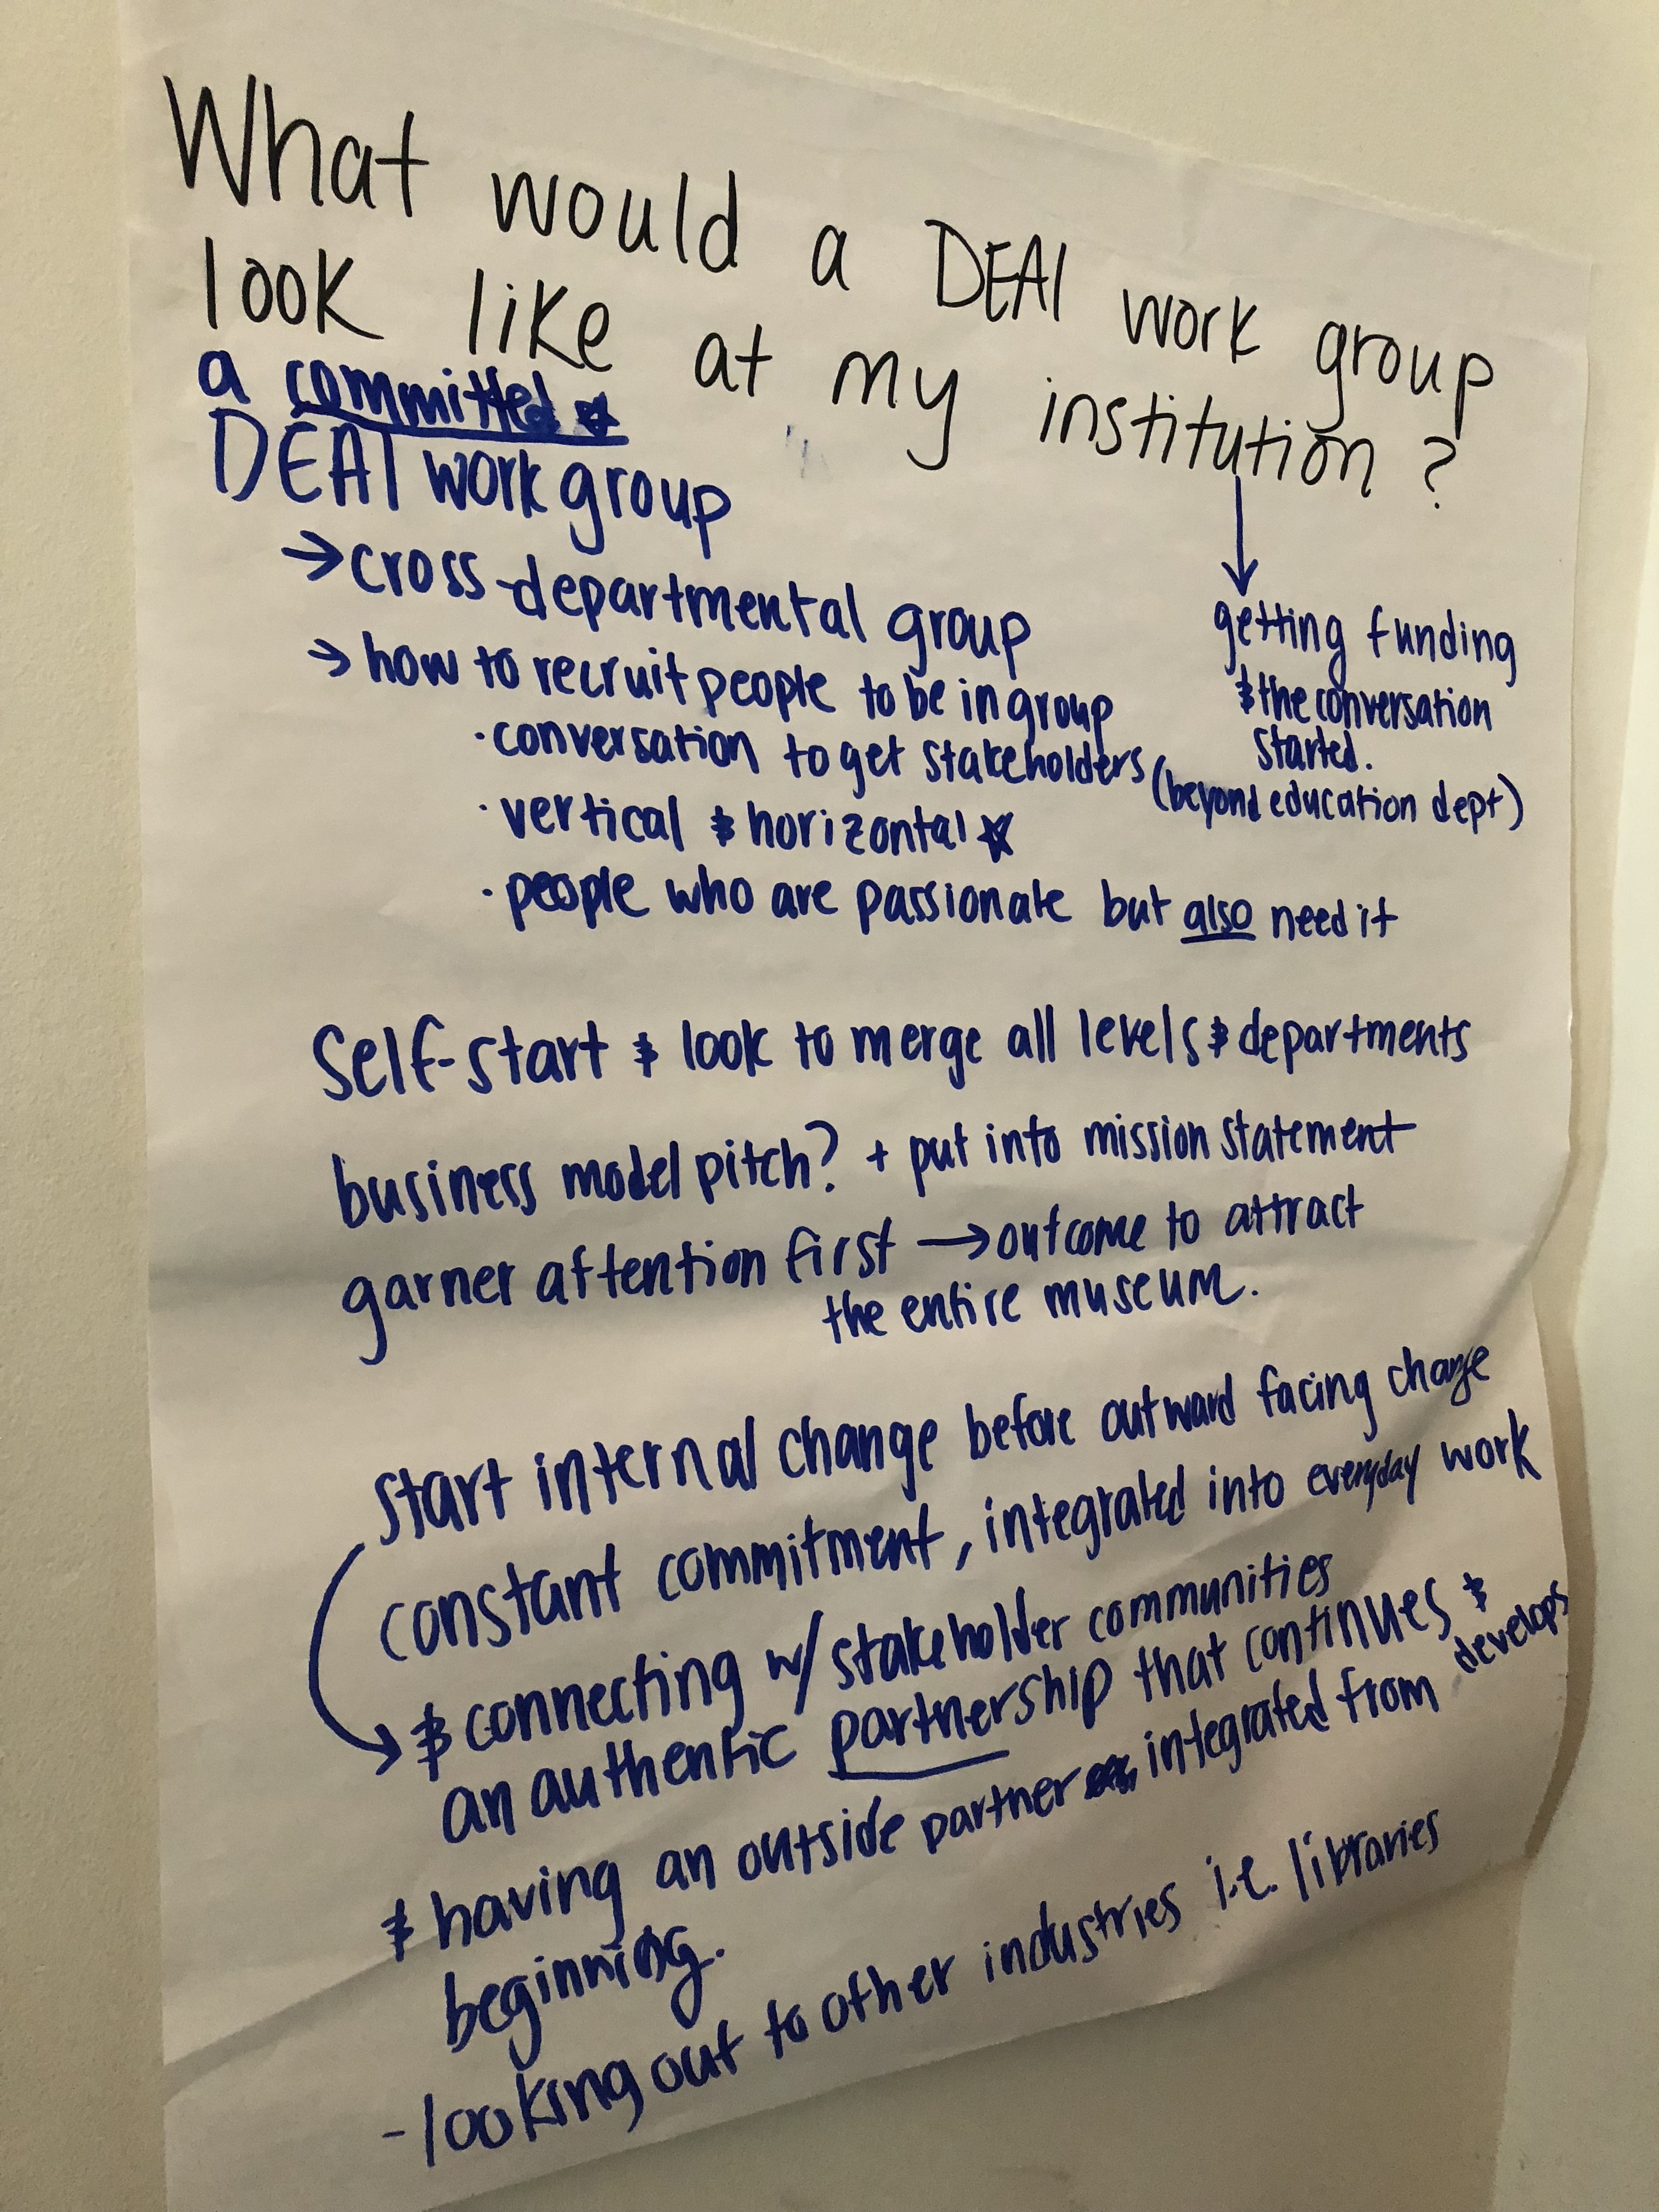 What would a DEAI work group
look like at my institution?
a committed ☆
DEAI work group
→ cross-departmental group
→ how to recruit people to be in group
· conversation to get stakeholders (beyond education dept)
· vertical & horizontal ☆
· people who are passionate but also need it
↓
getting funding
& the conversation
started.
Self-start & look to merge all levels & departments
business model pitch? + put into mission statement
garner attention first → outcome to attract
the entire museum.
start internal change before outward facing change
constant commitment, integrated into everyday work
→ & connecting w/ stakeholder communities
an authentic partnership that continues &
develops
& having an outside partner integrated from
beginning.
- looking out to other industries i.e. libraries